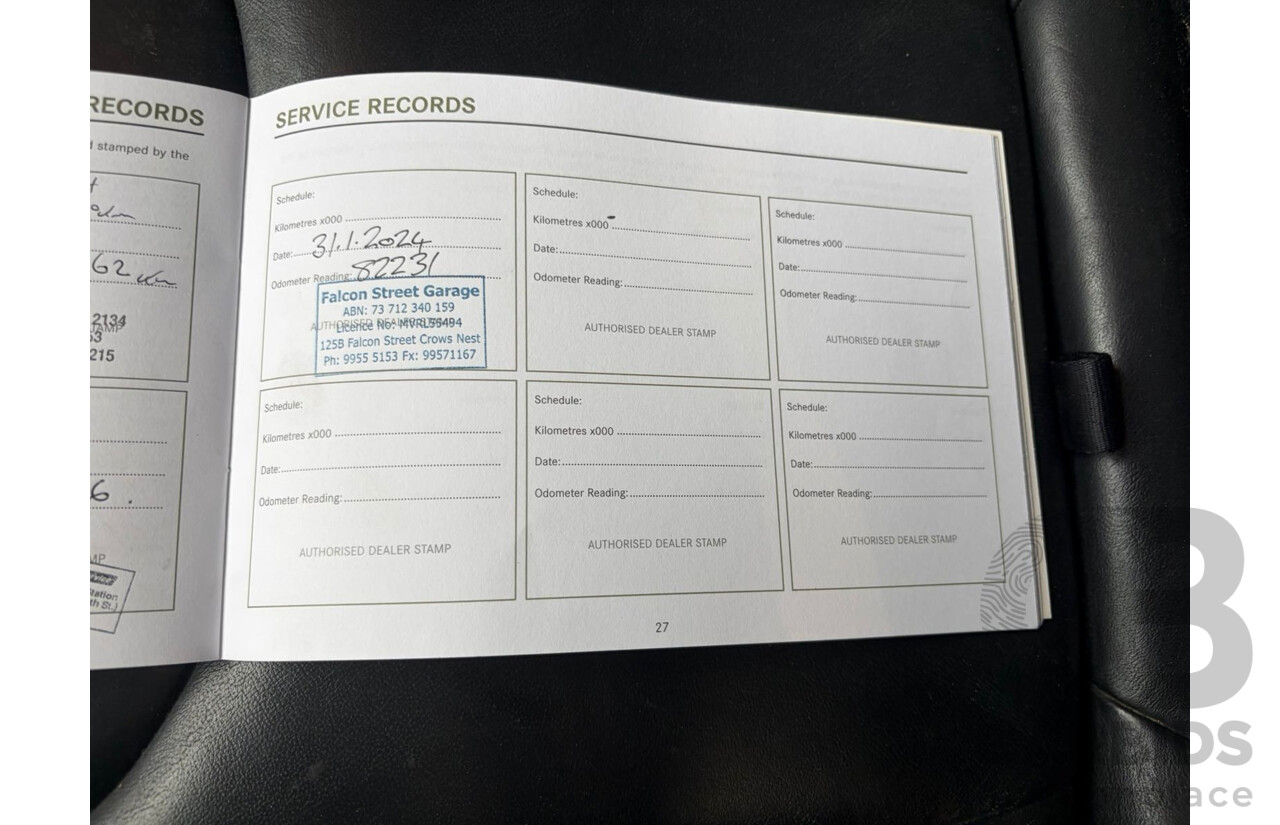 RECORDS
stamped by the
62 km
2134
215
6.
SERVICE RECORDS
Schedule:
Kilometres x000
Date: 31.1.2024
Odometer Reading: 82231
Falcon Street Garage
ABN: 73 712 340 159
AUTHORISED DEALER STAMP
Licence No: MVRL55494
125B Falcon Street Crows Nest
Ph: 9955 5153 Fx: 99571167
Schedule:
Kilometres x000
Date:
Odometer Reading:
AUTHORISED DEALER STAMP
Schedule:
Kilometres x000
Date:
Odometer Reading:
AUTHORISED DEALER STAMP
Schedule:
Kilometres x000
Date:
Odometer Reading:
AUTHORISED DEALER STAMP
Schedule:
Kilometres x000
Date:
Odometer Reading:
AUTHORISED DEALER STAMP
Schedule:
Kilometres x000
Date:
Odometer Reading:
AUTHORISED DEALER STAMP
27